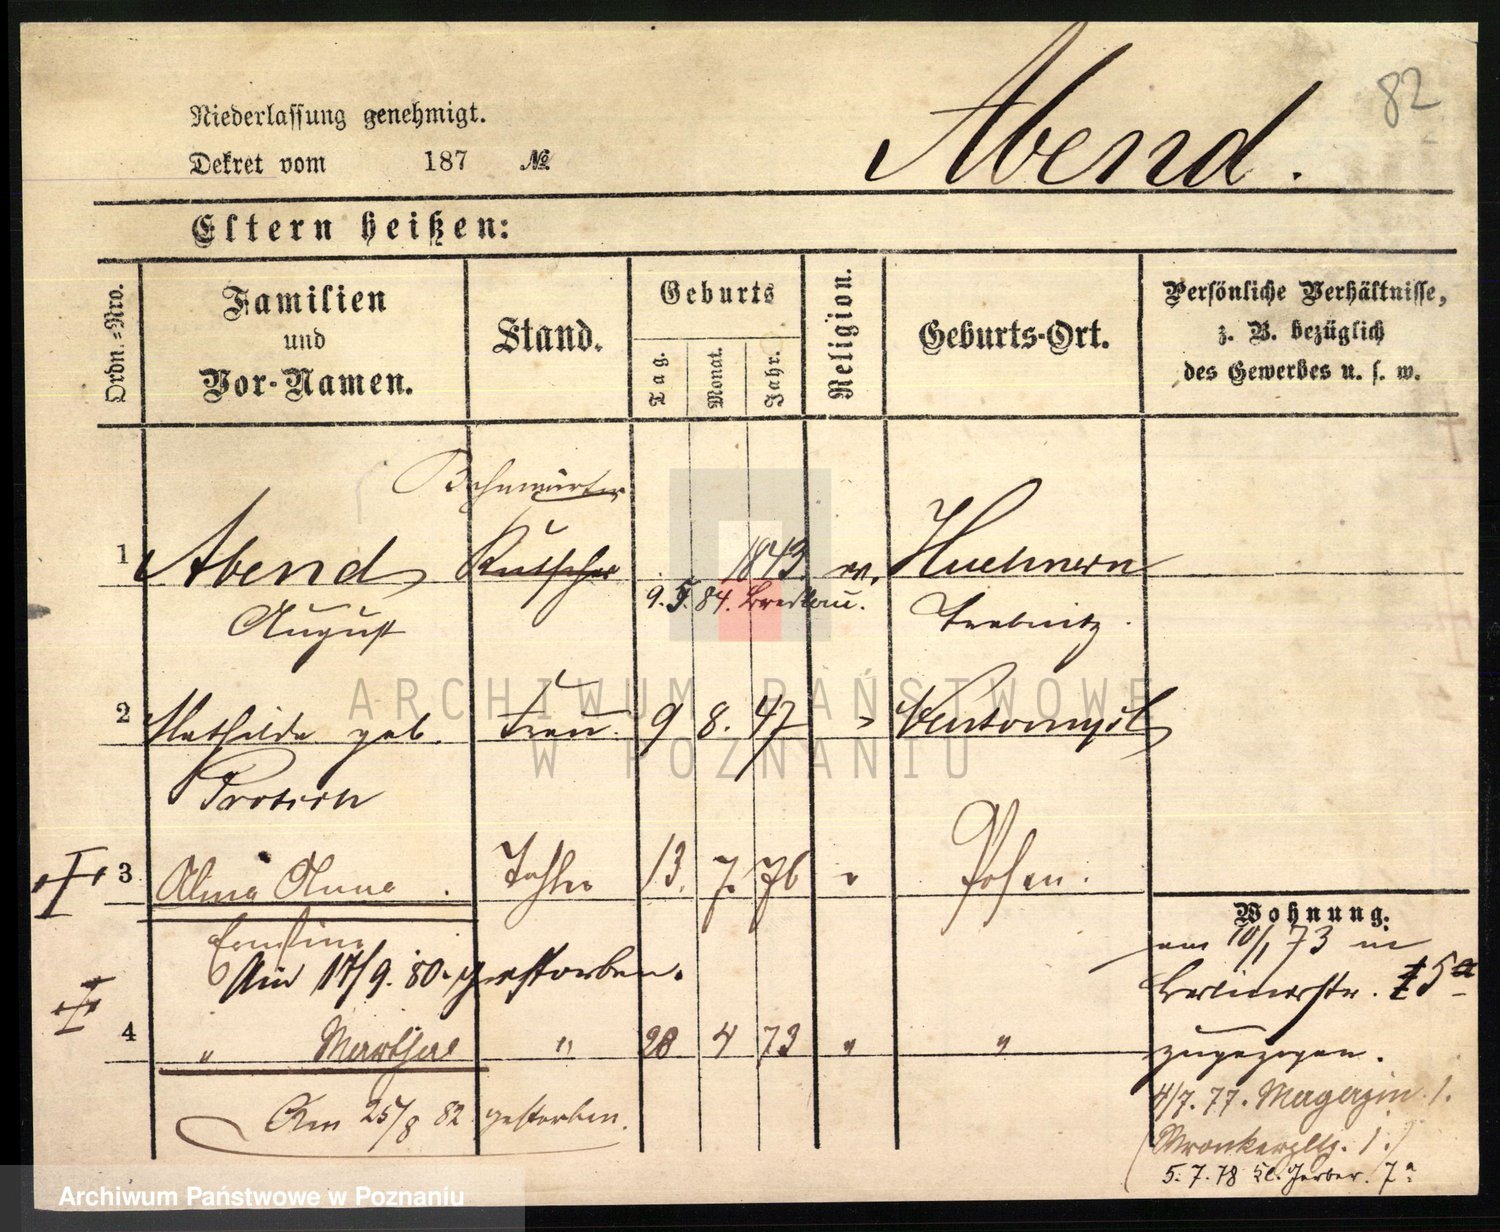 82
Niederlassung genehmigt.
Abend.
Dekret vom 187 №
Eltern heißen:
Ordn.-Nro.
Familien
und
Vor-Namen.
Stand.
Geburts
Tag.
Monat.
Jahr.
Religion.
Geburts-Ort.
Persönliche Verhältnisse,
z. B. bezüglich
des Gewerbes u. s. w.
Bahnwärter
1 Abend Kutscher 1843 ev. Huehnern
August 9. 5. 84. Breslau. Trebnitz.
2 Mathilde geb. Frau 9 8. 47 " Neutomysl
3 Alma Anna Tochter 13. 7. 76 " Posen.
Ernstine
Wohnung.
am 10/1 73 in
Am 17/9. 80. gestorben.
Berlinerstr. 15a
4 " Marthae " 28 4 73 " "
zugezogen.
Am 25/8 82 gestorben.
4/7. 77. Magazin. 1.
(Wronkerpltz. 1.)
5. 7. 78 Kl. Gerber. 7a
ARCHIWUM PAŃSTWOWE
W POZNANIU
Archiwum Państwowe w Poznaniu